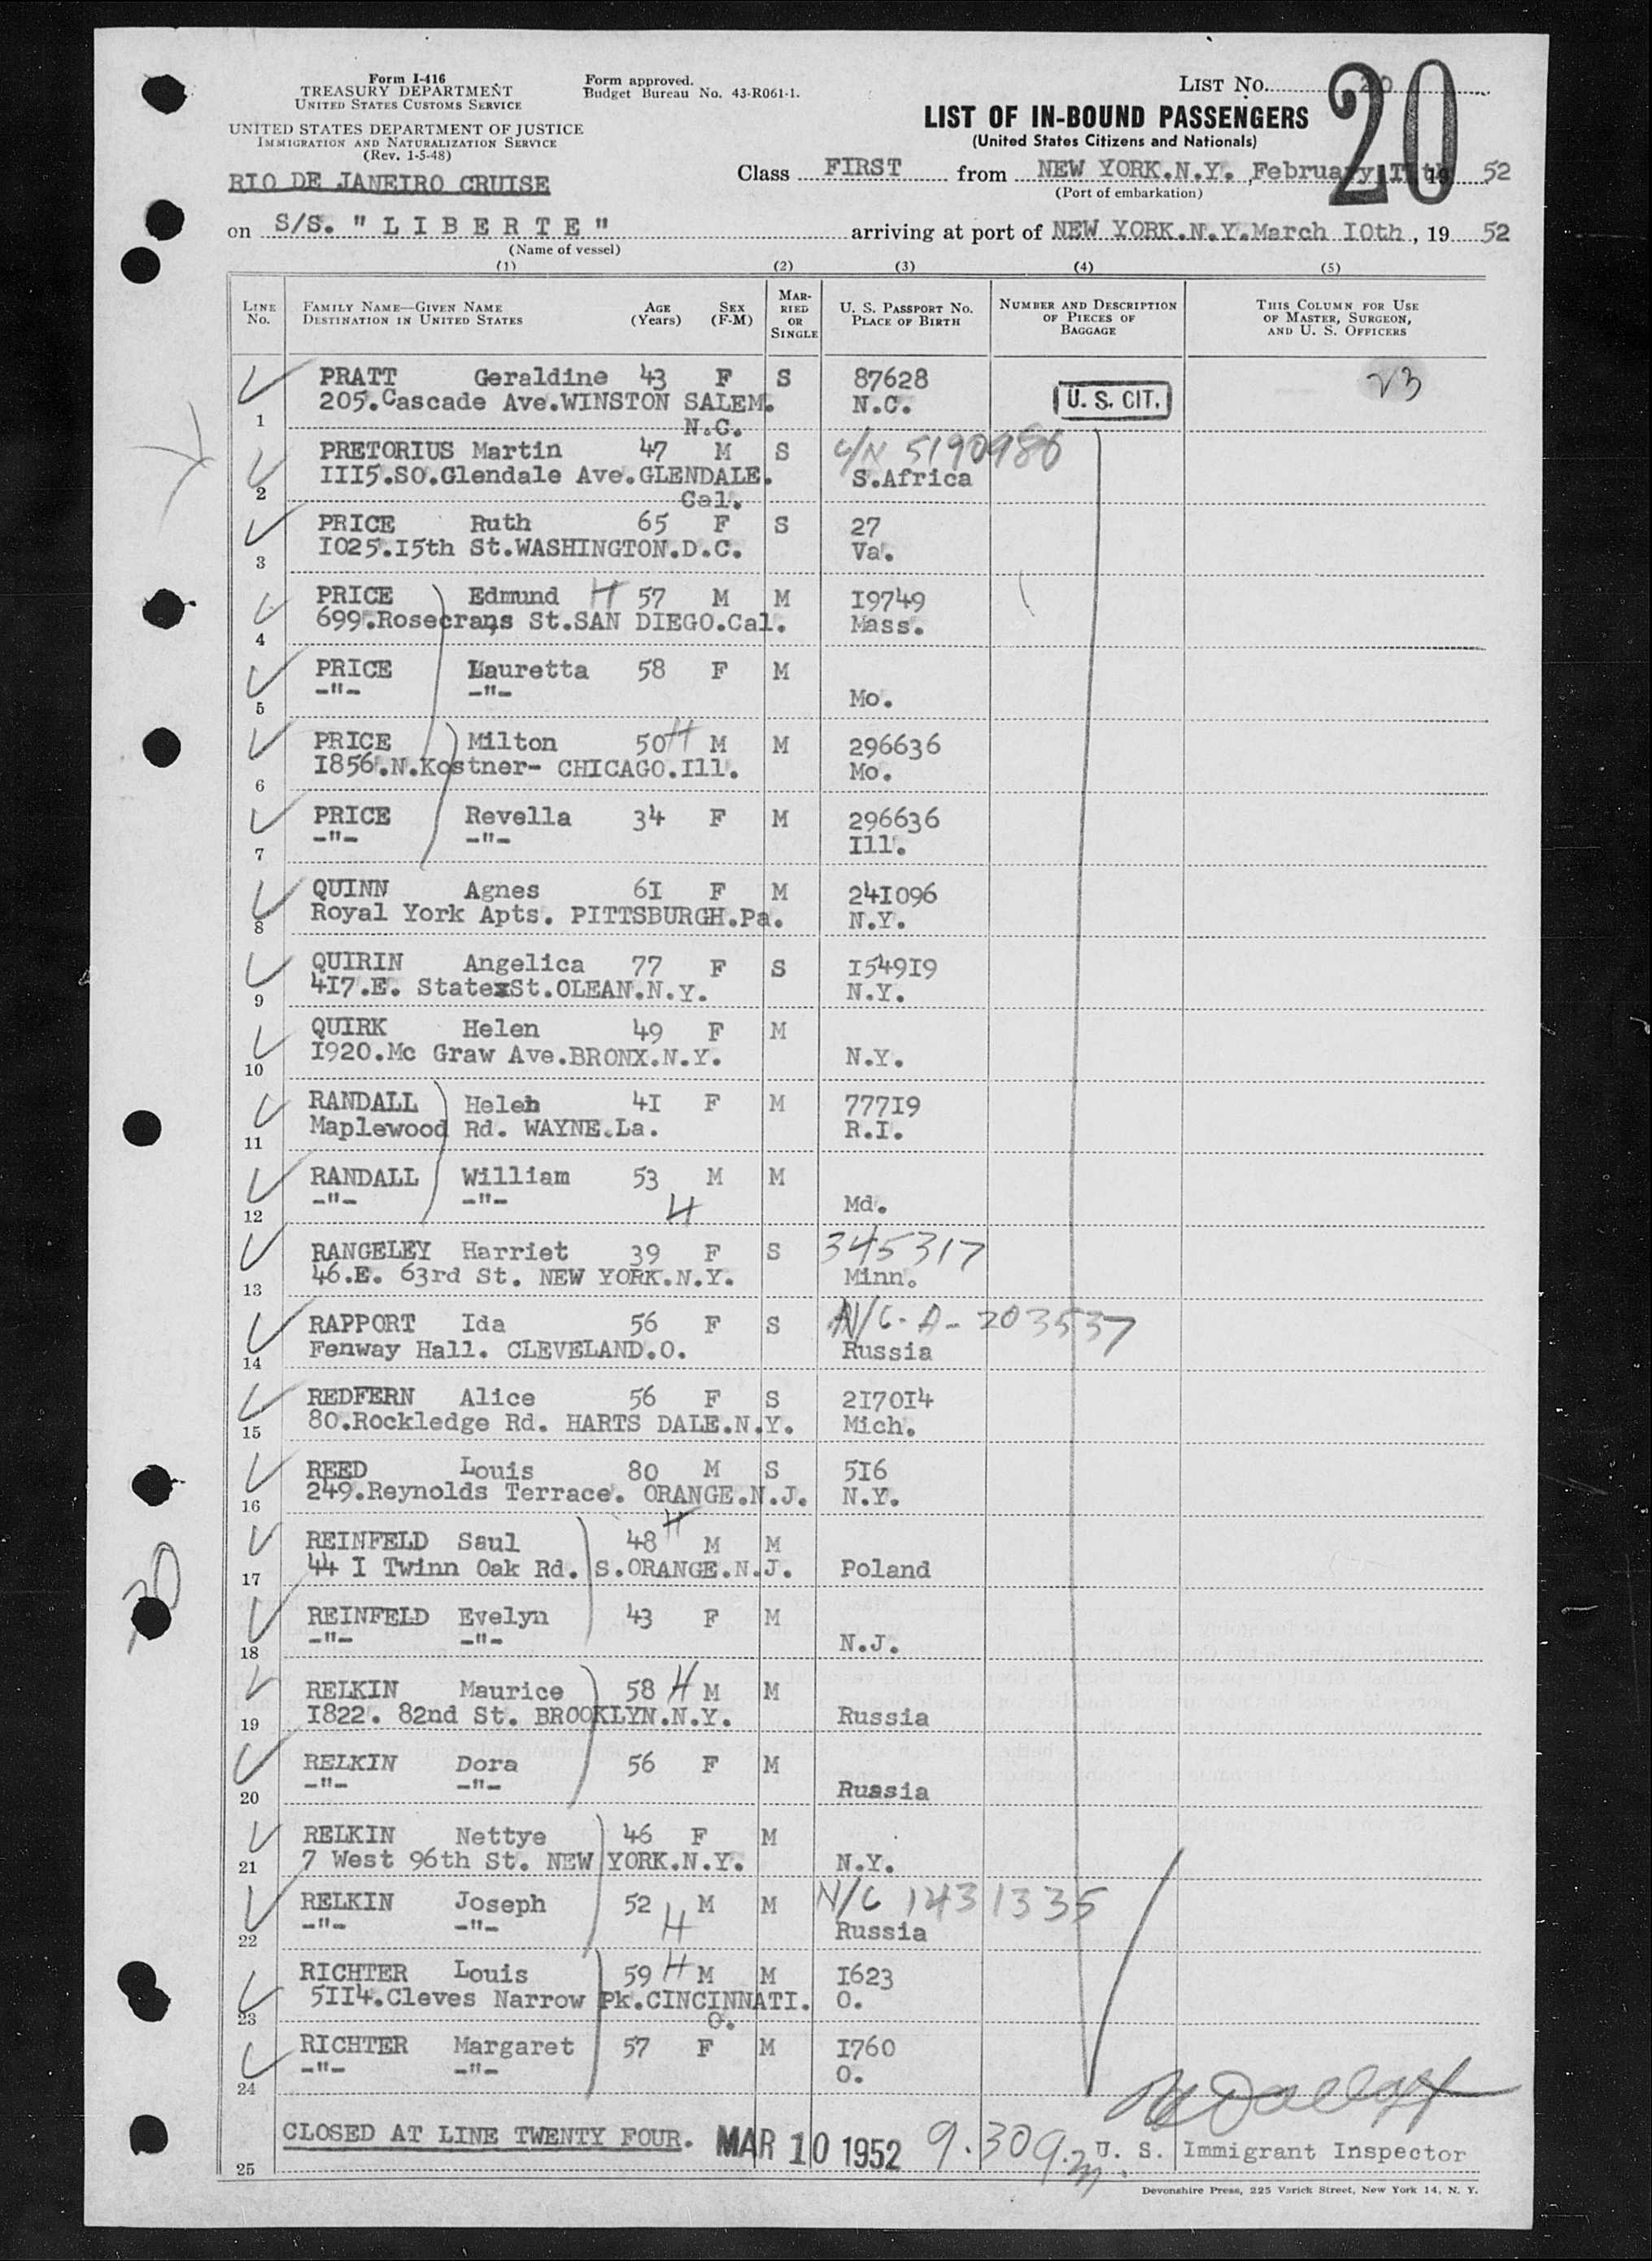 Form I-416
TREASURY DEPARTMENT
UNITED STATES CUSTOMS SERVICE
UNITED STATES DEPARTMENT OF JUSTICE
IMMIGRATION AND NATURALIZATION SERVICE
(Rev. 1-5-48)
Form approved.
Budget Bureau No. 43-R061-1.
LIST NO. 20
20
LIST OF IN-BOUND PASSENGERS
(United States Citizens and Nationals)
RIO DE JANEIRO CRUISE
Class FIRST from NEW YORK.N.Y. ,February 19 52
(Port of embarkation)
on S/S. " L I B E R T E " arriving at port of NEW YORK.N.Y.March I0th , 19 52
(Name of vessel)
(1) (2) (3) (4) (5)
LINE No. FAMILY NAME—GIVEN NAME DESTINATION IN UNITED STATES AGE (Years) SEX (F-M) MARRIED OR SINGLE U. S. PASSPORT NO. PLACE OF BIRTH NUMBER AND DESCRIPTION OF PIECES OF BAGGAGE THIS COLUMN FOR USE OF MASTER, SURGEON, AND U. S. OFFICERS
PRATT Geraldine 43 F S 87628 23
1 205.Cascade Ave.WINSTON SALEM. N.C. U. S. CIT.
N.C.
PRETORIUS Martin 47 M S C/N 5190986
2 III5.SO.Glendale Ave.GLENDALE. S.Africa
Cal.
PRICE Ruth 65 F S 27
3 I025.I5th St.WASHINGTON.D.C. Va.
PRICE Edmund H 57 M M I9749
4 699.Rosecrans St.SAN DIEGO.Cal. Mass.
PRICE Lauretta 58 F M
5 -"- -"- Mo.
PRICE Milton 50 H M M 296636
6 I856.N.Kostner- CHICAGO.Ill. Mo.
PRICE Revella 34 F M 296636
7 -"- -"- Ill.
QUINN Agnes 6I F M 24I096
8 Royal York Apts. PITTSBURGH.Pa. N.Y.
QUIRIN Angelica 77 F S I549I9
9 4I7.E. StatexSt.OLEAN.N.Y. N.Y.
QUIRK Helen 49 F M
10 I920.Mc Graw Ave.BRONX.N.Y. N.Y.
RANDALL Helen 4I F M 777I9
11 Maplewood Rd. WAYNE.La. R.I.
RANDALL William 53 M M
12 -"- -"- H Md.
RANGELEY Harriet 39 F S 345317
13 46.E. 63rd St. NEW YORK.N.Y. Minn.
RAPPORT Ida 56 F S N/C- A- 203537
14 Fenway Hall. CLEVELAND.O. Russia
REDFERN Alice 56 F S 2I70I4
15 80.Rockledge Rd. HARTS DALE.N.Y. Mich.
REED Louis 80 M S 5I6
16 249.Reynolds Terrace. ORANGE.N.J. N.Y.
REINFELD Saul 48 H M M
17 44 I Twinn Oak Rd. S.ORANGE.N.J. Poland
REINFELD Evelyn 43 F M
18 -"- -"- N.J.
RELKIN Maurice 58 H M M
19 I822. 82nd St. BROOKLYN.N.Y. Russia
RELKIN Dora 56 F M
20 -"- -"- Russia
RELKIN Nettye 46 F M
21 7 West 96th St. NEW YORK.N.Y. N.Y.
RELKIN Joseph 52 M M N/C 1431335
22 -"- -"- H Russia
RICHTER Louis 59 H M M I623
23 5II4.Cleves Narrow Pk.CINCINNATI. O.
O.
RICHTER Margaret 57 F M I760
24 -"- -"- O.
25 CLOSED AT LINE TWENTY FOUR. MAR 10 1952 9.30 a.m. U. S. Immigrant Inspector
Devonshire Press, 225 Varick Street, New York 14, N. Y.